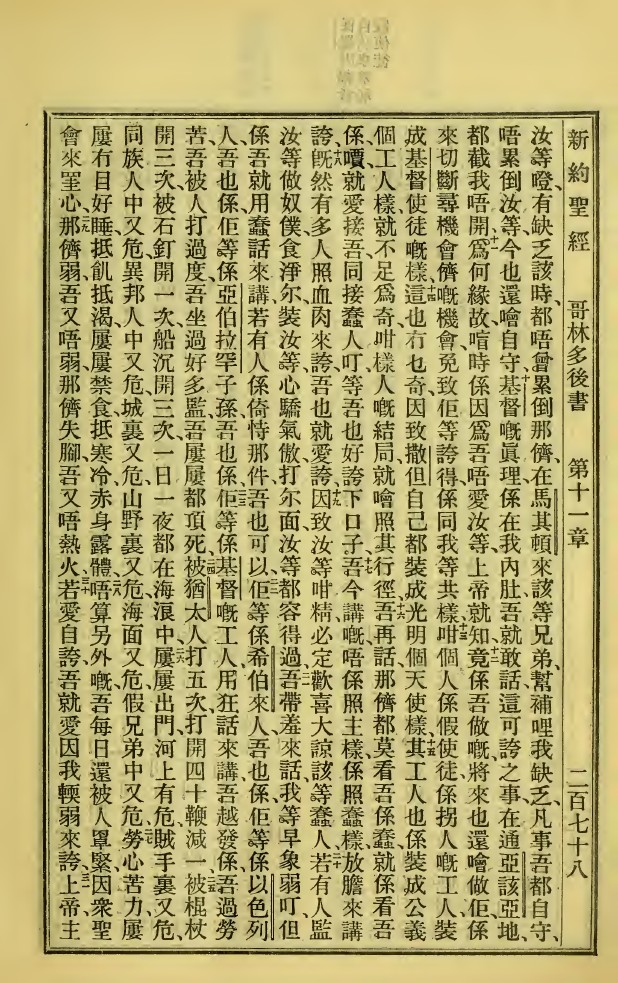 新約聖經　哥林多後書　第十一章　二百七十八
汝等嗆有缺乏該時都唔曾累倒那儕在馬其頓來該等兄弟幫補哩我缺乏凡事吾都自守
唔累倒汝等今也還噲自守基督嘅眞理係在我內肚吾就敢話這可誇之事在通亞該亞地
都截我唔開爲何緣故喧時係因爲吾唔愛汝等上帝就知竟係吾做嘅將來也還噲做佢係
來切斷尋機會儕嘅機會免致佢等誇得係同我等共樣咁個人係假使徒係拐人嘅工人裝
成基督使徒嘅樣這也冇乜奇因致撒但自己都裝成光明個天使樣其工人也係裝成公義
個工人樣就不足爲奇咁樣人嘅結局就噲照其行徑吾再話那儕都莫看吾係蠢就係看吾
係嘪就愛接吾同接蠢人叮等吾也好誇下口子吾今講嘅唔係照主樣係照蠢樣放膽來講
誇旣然有多人照血肉來誇吾也就愛誇因致汝等咁精必定歡喜大諒該等蠢人若有人監
汝等做奴僕食淨尔裝汝等心驕氣傲打尔面汝等都容得過吾帶羞來話我等早象弱叮但
係吾就用蠢話來講若有人係倚恃那件吾也可以佢等係希伯來人吾也係佢等係以色列
人吾也係佢等係亞伯拉罕子孫吾也係佢等係基督嘅工人用狂話來講吾越發係吾過勞
苦吾被人打過度吾坐過好多監吾屢屢都頂死被猶太人打五次打開四十鞭減一被棍杖
開三次被石釘開一次船沉開三次一日一夜都在海浪中屢屢出門河上有危賊手裏又危
同族人中又危異邦人中又危城裏又危山野裏又危海面又危假兄弟中又危勞心苦力屢
屢冇目好睡抵飢抵渴屢屢禁食抵寒冷赤身露體唔算另外嘅吾每日還被人罩緊因衆聖
會來罣心那儕弱吾又唔弱那儕失腳吾又唔熱火若愛自誇吾就愛因我輭弱來誇上帝主